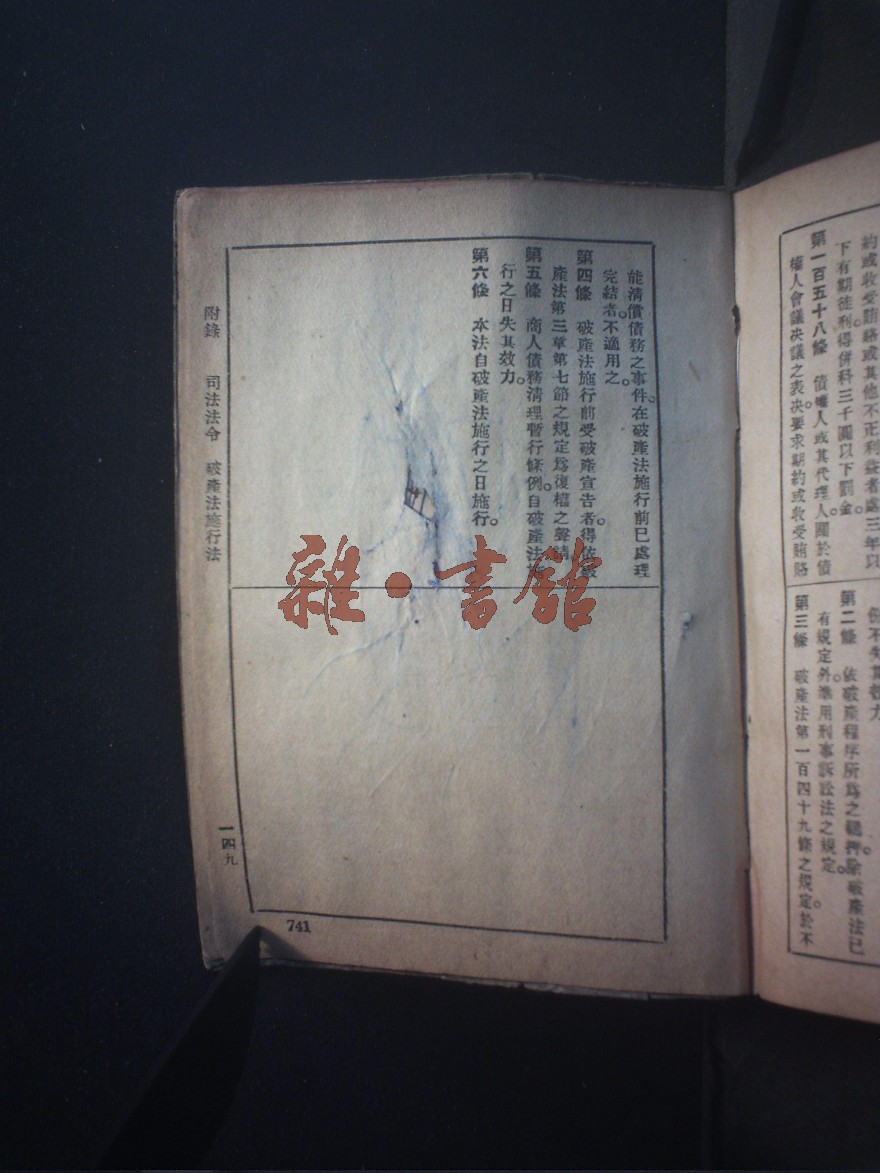 約或收受賄賂或其他不正利益者處三年以
下有期徒刑得併科三千圓以下罰金。
第一百五十八條　債權人或其代理人關於債
權人會議決議之表決要求期約或收受賄賂
第二條　依破產程序所爲之
破產法已
有規定外。準用刑事訴訟法之規定。
第三條　破產法第一百四十九條之規定。於不
能清償債務之事件。在破產法施行前已處理
完結者。不適用之。
第四條　破產法施行前受破產宣告者。得依破
產法第三章第七節之規定爲復權之聲請。
第五條　商人債務清理暫行條例。自破產法施
行之日失其效力。
第六條　本法自破產法施行之日施行。
附錄　司法法令　破產法施行法
一四九
741
雜·書館